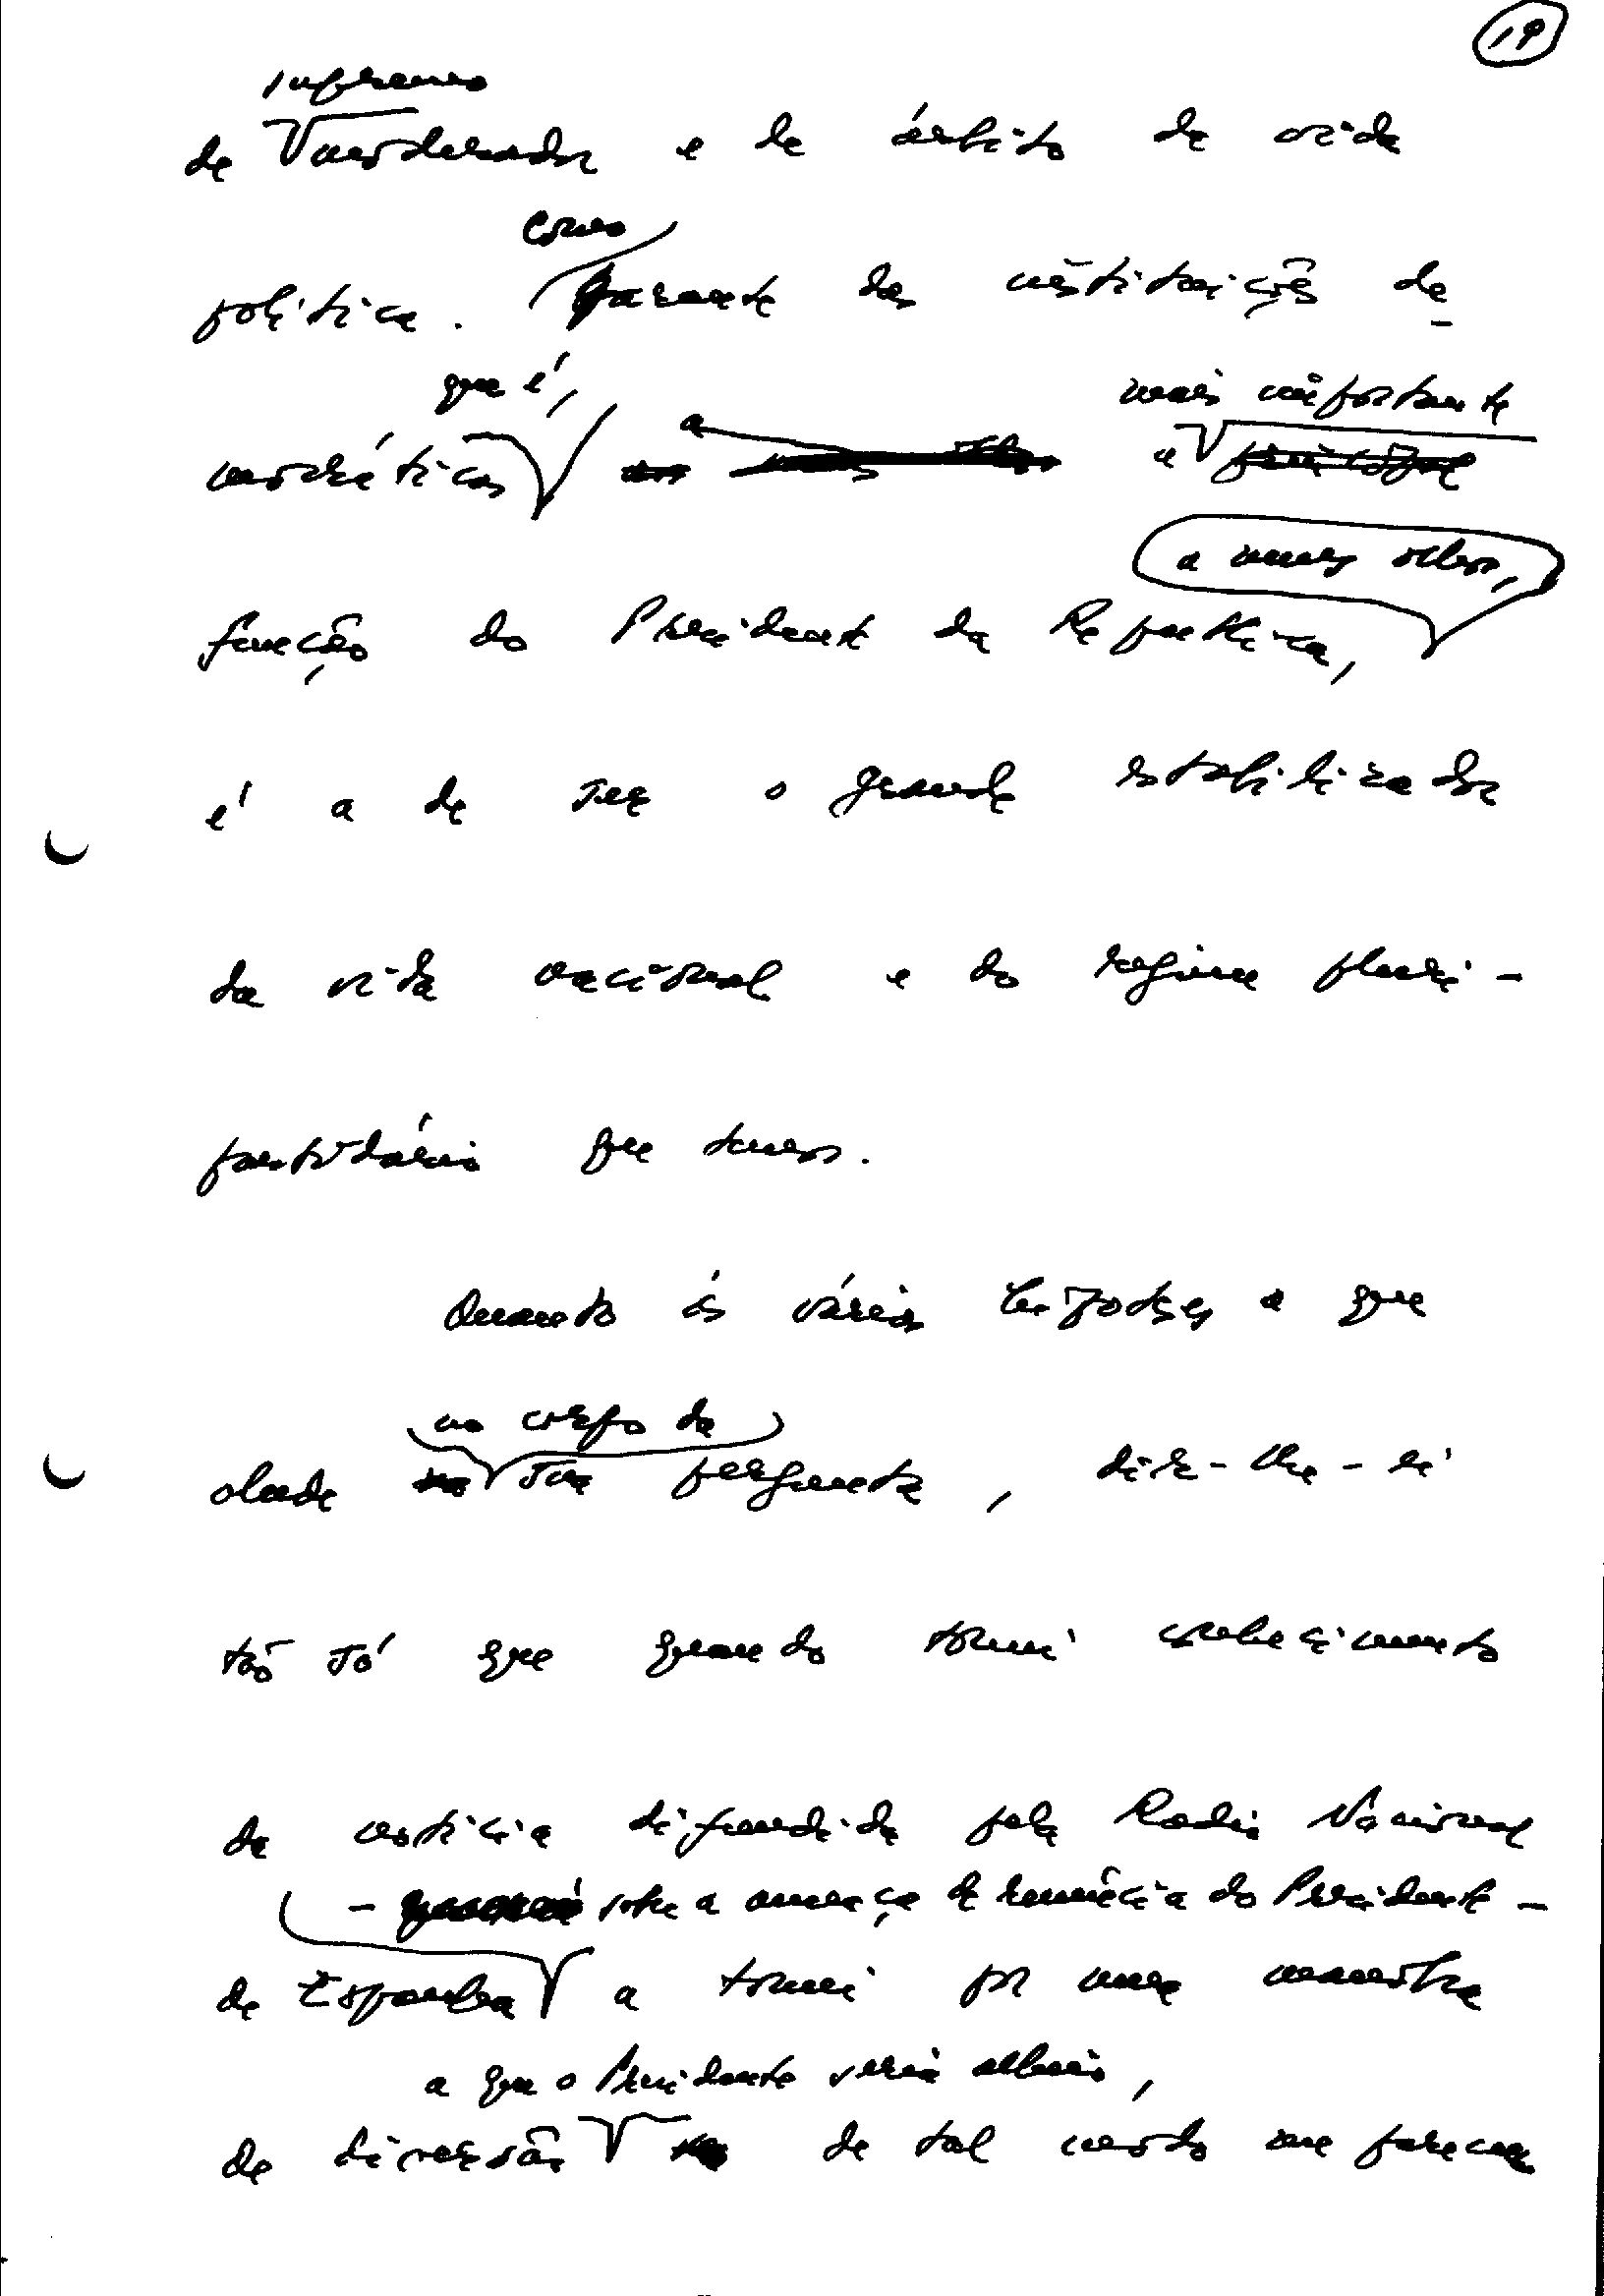 19
supremo
de moderador e de árbitro da vida
como
política. garante das instituições de-
que é,
mocráticas a
mais importante
a principal
a meus olhos,
função do Presidente da República,
é a de ser o grande estabilizador
da vida nacional e do regime pluri-
partidário que temos.
Quanto às várias hipóteses a que
no corpo da
alude na sua pergunta, dir-lhe-ei
tão só que quando tomei conhecimento
da notícia difundida pela Radio Nacional
- sobre a ameaça de renúncia do Presidente -
de Espanha a tomei por uma manobra
a que o Presidente seria alheio,
de diversão de tal modo me pareceu